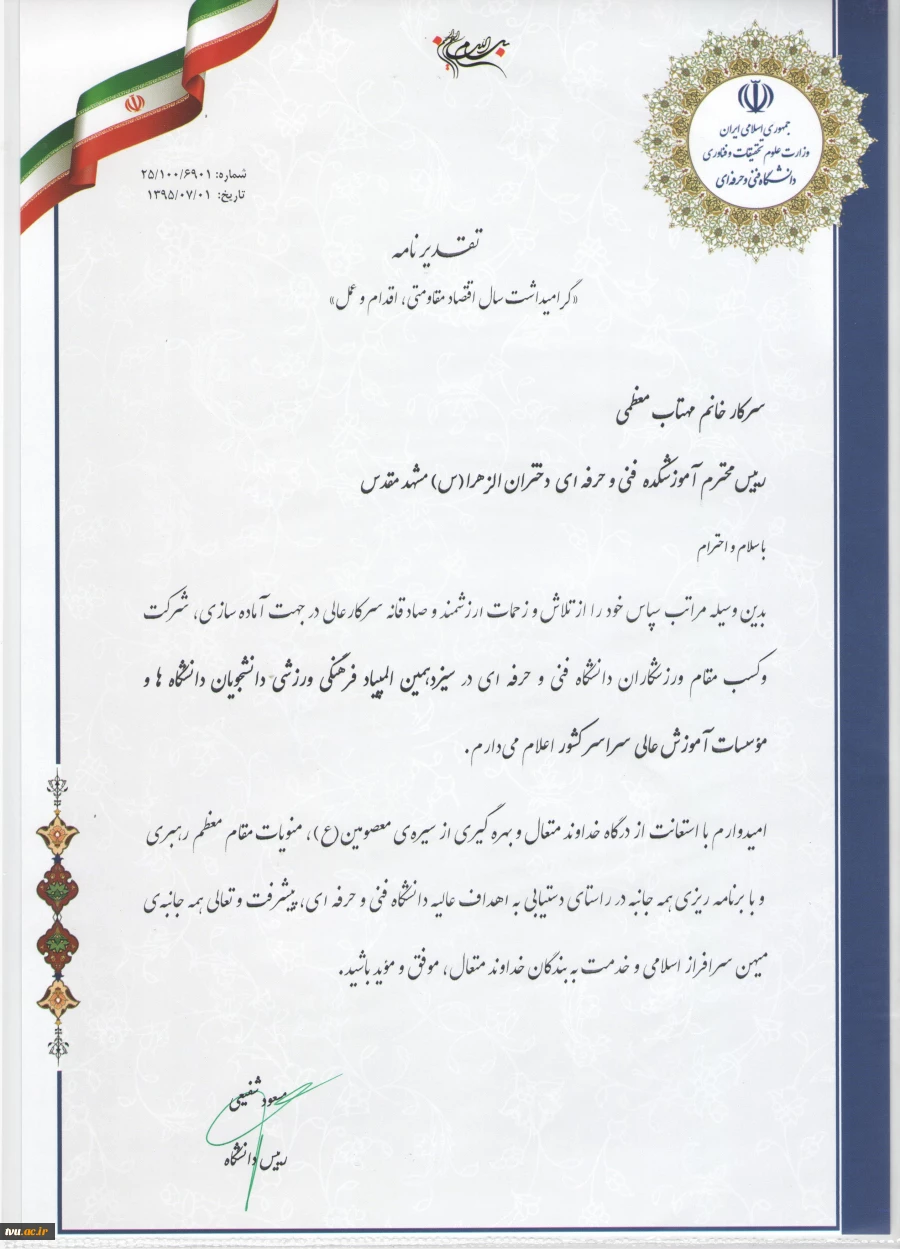 بسم الله الرحمن الرحیم
جمهوری اسلامی ایران
وزارت علوم تحقیقات و فناوری
دانشگاه فنی و حرفه ای
شماره: ۲۵/۱۰۰/۶۹۰۱
تاریخ: ۱۳۹۵/۰۷/۰۱
تقدیر نامه
«گرامیداشت سال اقتصاد مقاومتی، اقدام و عمل»
سرکار خانم مهتاب معظمی
رییس محترم آموزشکده فنی و حرفه ای دختران الزهرا (س) مشهد مقدس
با سلام و احترام
بدین وسیله مراتب سپاس خود را از تلاش و زحمات ارزشمند و صادقانه سرکار عالی در جهت آماده سازی، شرکت
و کسب مقام ورزشکاران دانشگاه فنی و حرفه ای در سیزدهمین المپیاد فرهنگی ورزشی دانشجویان دانشگاه ها و
مؤسسات آموزش عالی سراسر کشور اعلام می‌دارم.
امیدوارم با استعانت از درگاه خداوند متعال و بهره گیری از سیره‌ی معصومین (ع)، منویات مقام معظم رهبری
و با برنامه ریزی همه جانبه در راستای دستیابی به اهداف عالیه دانشگاه فنی و حرفه ای، پیشرفت و تعالی همه جانبه‌ی
میهن سرافراز اسلامی و خدمت به بندگان خداوند متعال، موفق و مؤید باشید.
مسعود شفیعی
رییس دانشگاه
tvu.ac.ir